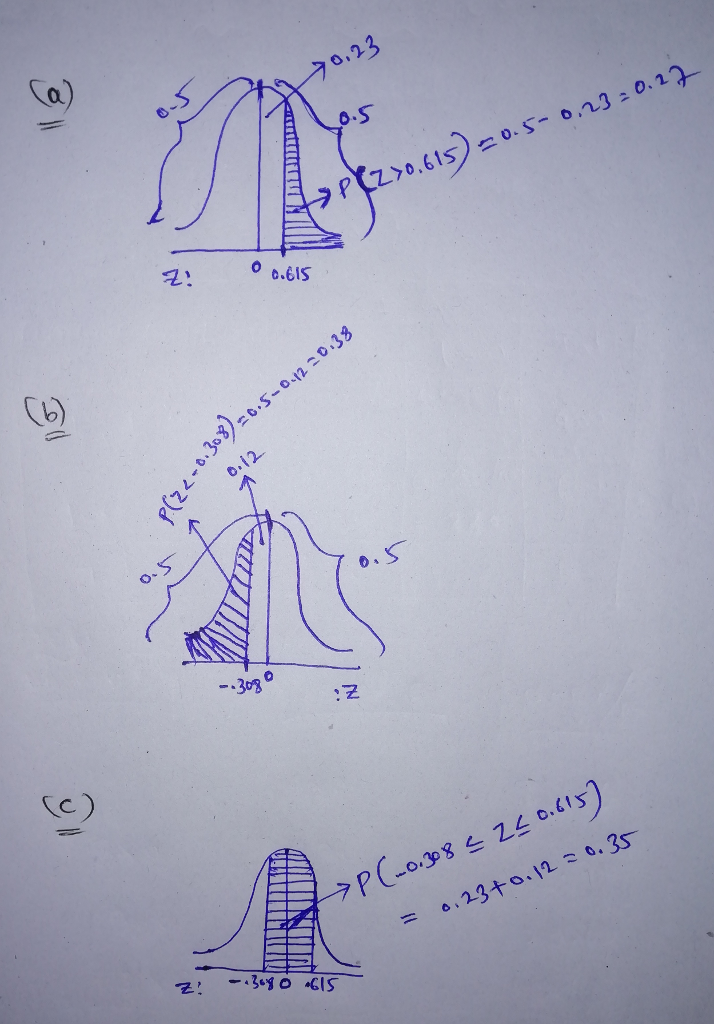 (a)
0.23
0.5
0.5
P(Z>0.615) = 0.5 - 0.23 = 0.27
Z:
0 0.615
(b)
P(Z<-0.308) = 0.5-0.12 = 0.38
0.12
0.5
0.5
-.308 0
:Z
(c)
P(-0.308 ≤ Z ≤ 0.615)
= 0.23+0.12 = 0.35
Z: -.308 0 .615